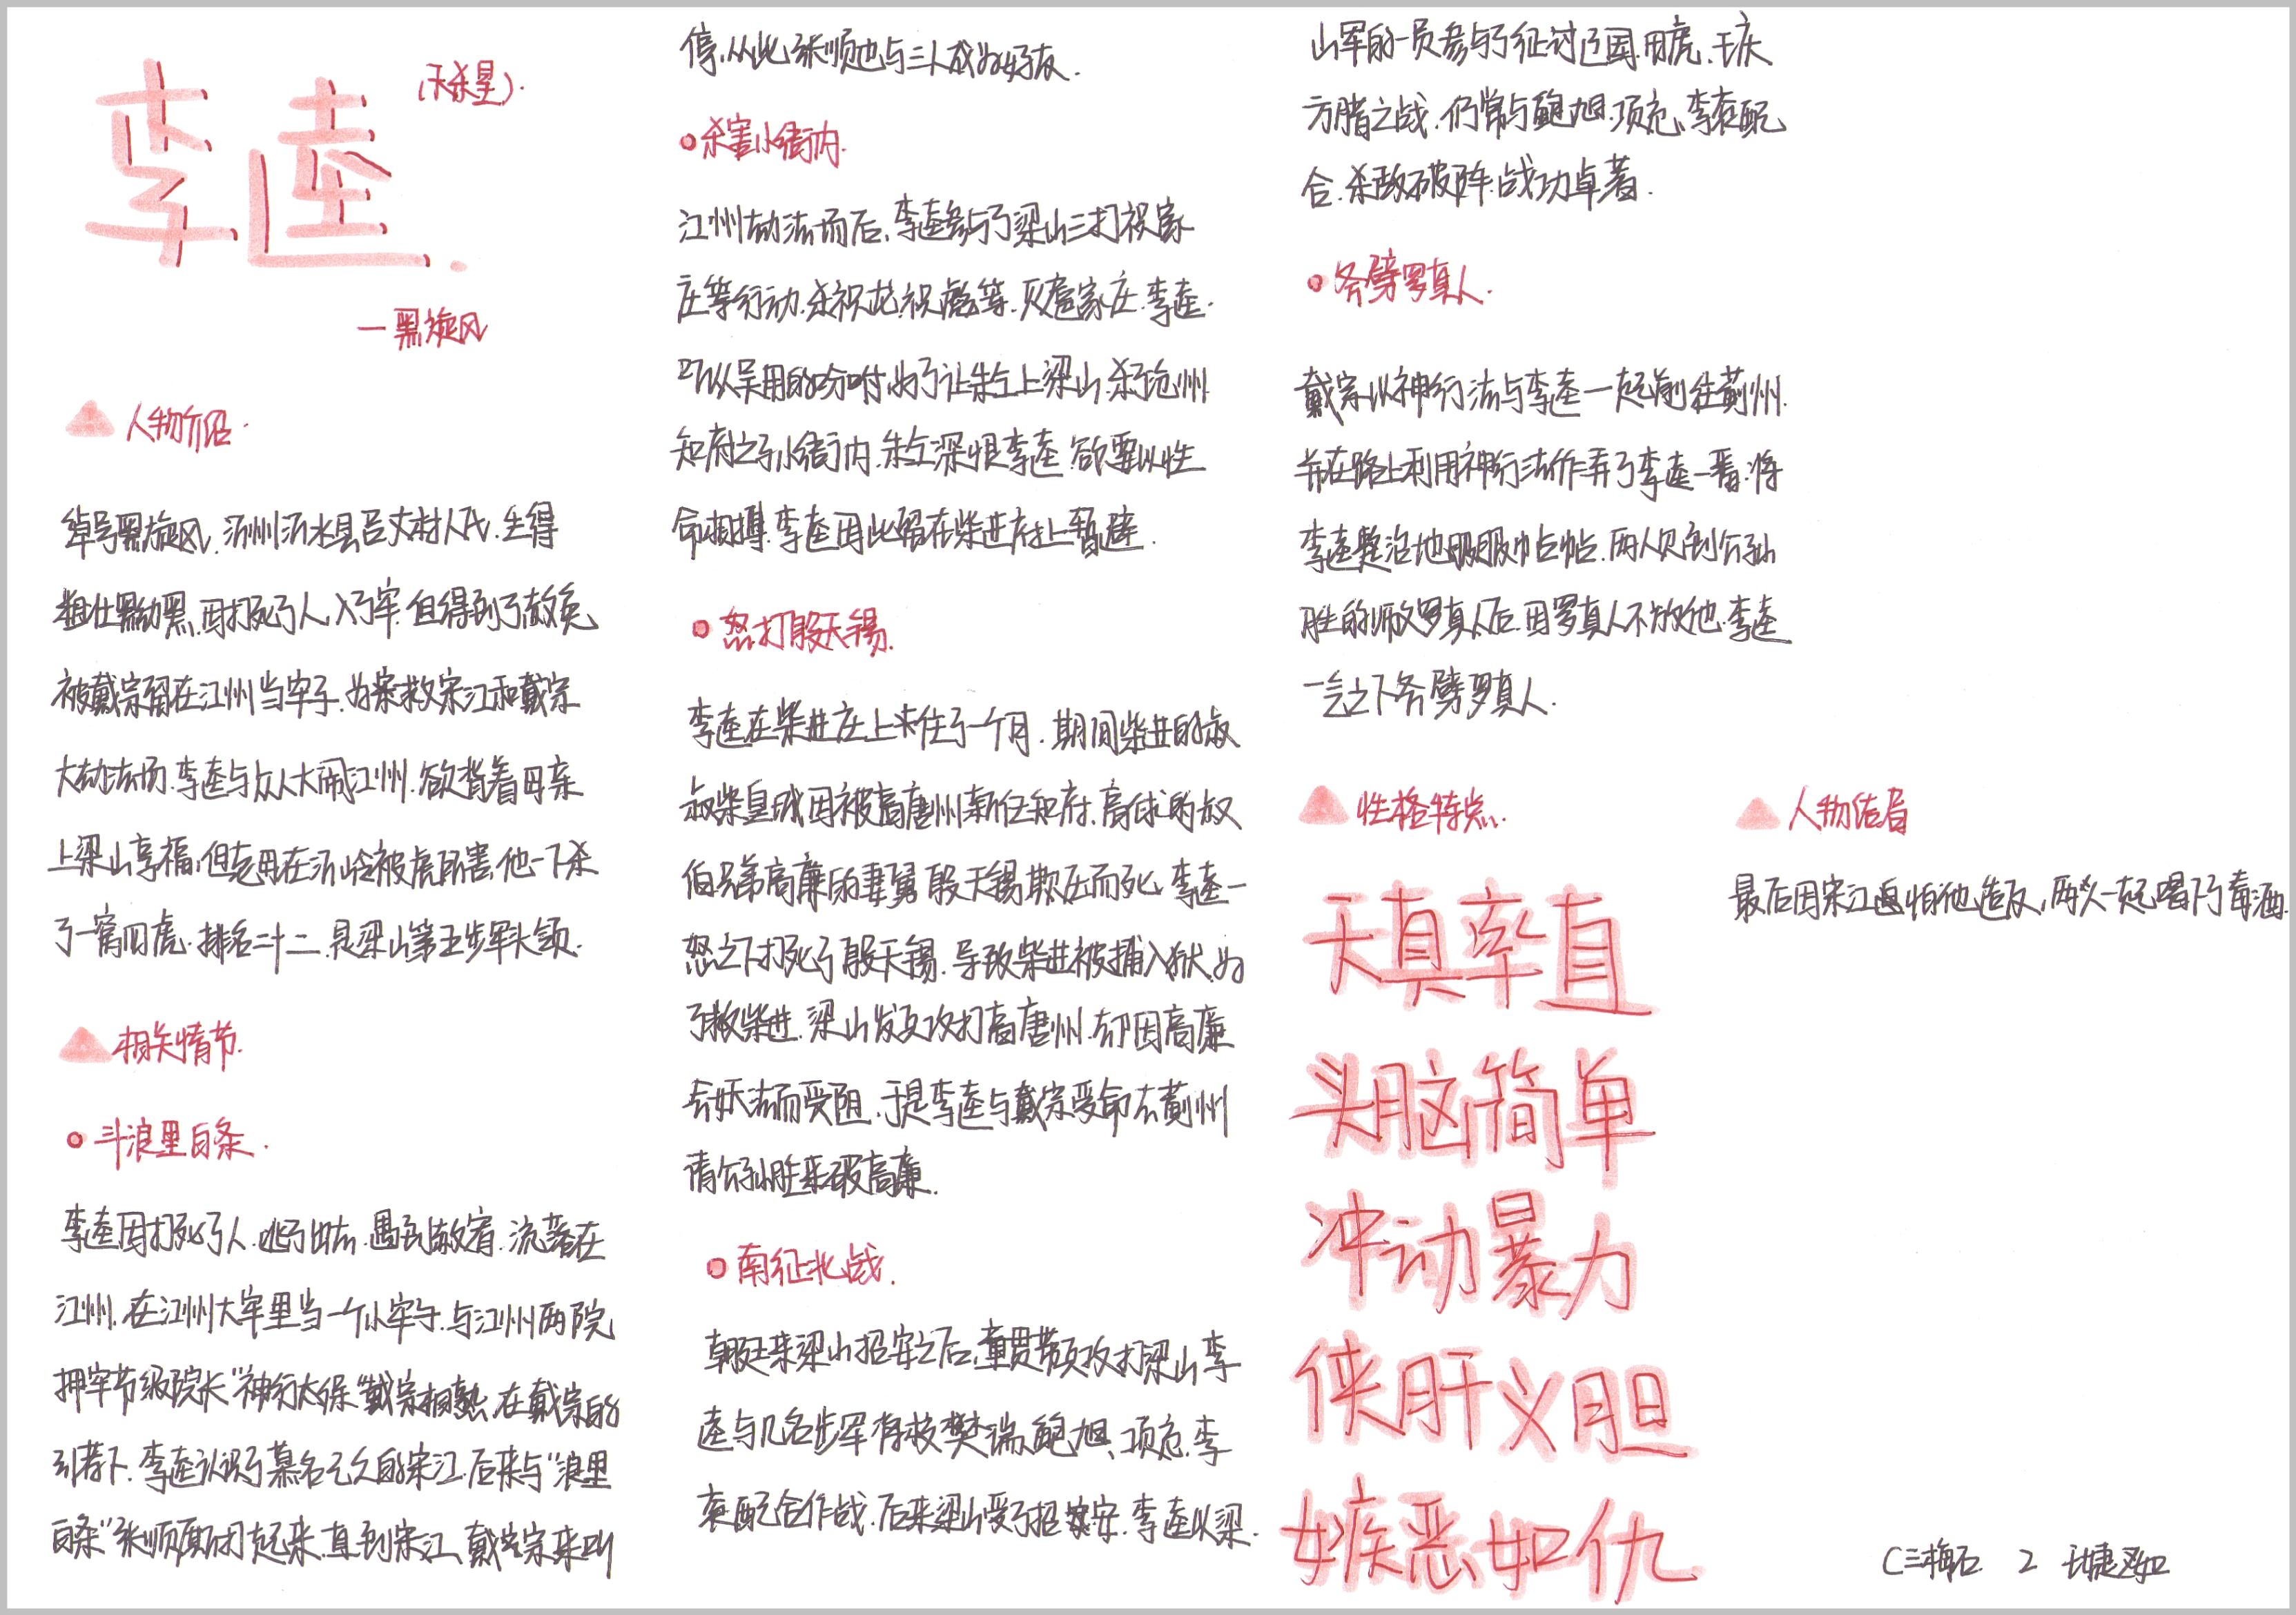 李逵
(天杀星).
一黑旋风
人物介绍.
绰号黑旋风.沂州沂水县百丈村人氏.生得
粗壮黝黑.因打死了人.入了牢.但得到了赦免
被戴宗留在江州当牢子.为案救宋江和戴宗
大劫法场.李逵与众人大闹江州.欲背着母亲
上梁山享福.但老母在沂岭被虎所害.他一下杀
了一窝四虎.排名二十二.是梁山第五步军头领.
相关情节.
斗浪里白条.
李逵因打死了人.逃了出去.遇到赦宥.流落在
江州.在江州大牢里当一个小牢子.与江州两院
押牢节级院长"神行太保"戴宗相熟.在戴宗的
引荐下.李逵认识了慕名已久的宋江.后来与"浪里
白条"张顺厮闭起来.直到宋江、戴宗来叫
停.从此.张顺也与三人成为好友.
杀害小衙内.
江州劫法场后.李逵参与了梁山三打祝家
庄等行动.杀祝龙.祝彪等.灭扈家庄.李逵.
听从吴用的吩咐.为了让朱仝上梁山.杀了沧州
知府之子小衙内.朱仝深恨李逵.欲要以性
命相搏.李逵因此留在柴进府上暂避.
怒打殷天锡.
李逵在柴进庄上住了一个月.期间柴进的叔
叔柴皇城因被高唐州新任知府.高俅的叔
伯兄弟高廉的妻舅殷天锡欺压而死.李逵一
怒之下打死了殷天锡.导致柴进被捕入狱.为
了救柴进.梁山发兵攻打高唐州.却因高廉
会妖法而受阻.于是李逵与戴宗受命去蓟州
请公孙胜来破高廉.
南征北战.
朝廷来梁山招安之后.童贯带领攻打梁山.李
逵与几名步军将校樊瑞、鲍旭、项充.李
衮配合作战.后来梁山受了招安.李逵以梁.
山军的一员参与了征讨辽国.田虎.王庆
方腊之战.仍常与鲍旭.项充.李衮配
合.杀敌破阵.战功卓著.
斧劈罗真人.
戴宗以神行法与李逵一起前往蓟州.
并在路上利用神行法作弄了李逵一番.将
李逵整治地服服帖帖.两人见到公孙
胜的师父罗真人后.因罗真人不放他.李逵
一气之下斧劈罗真人.
性格特点.
天真率直
头脑简单
冲动暴力
侠肝义胆
嫉恶如仇
人物结局
最后因宋江怕他造反,两人一起喝下了毒酒.